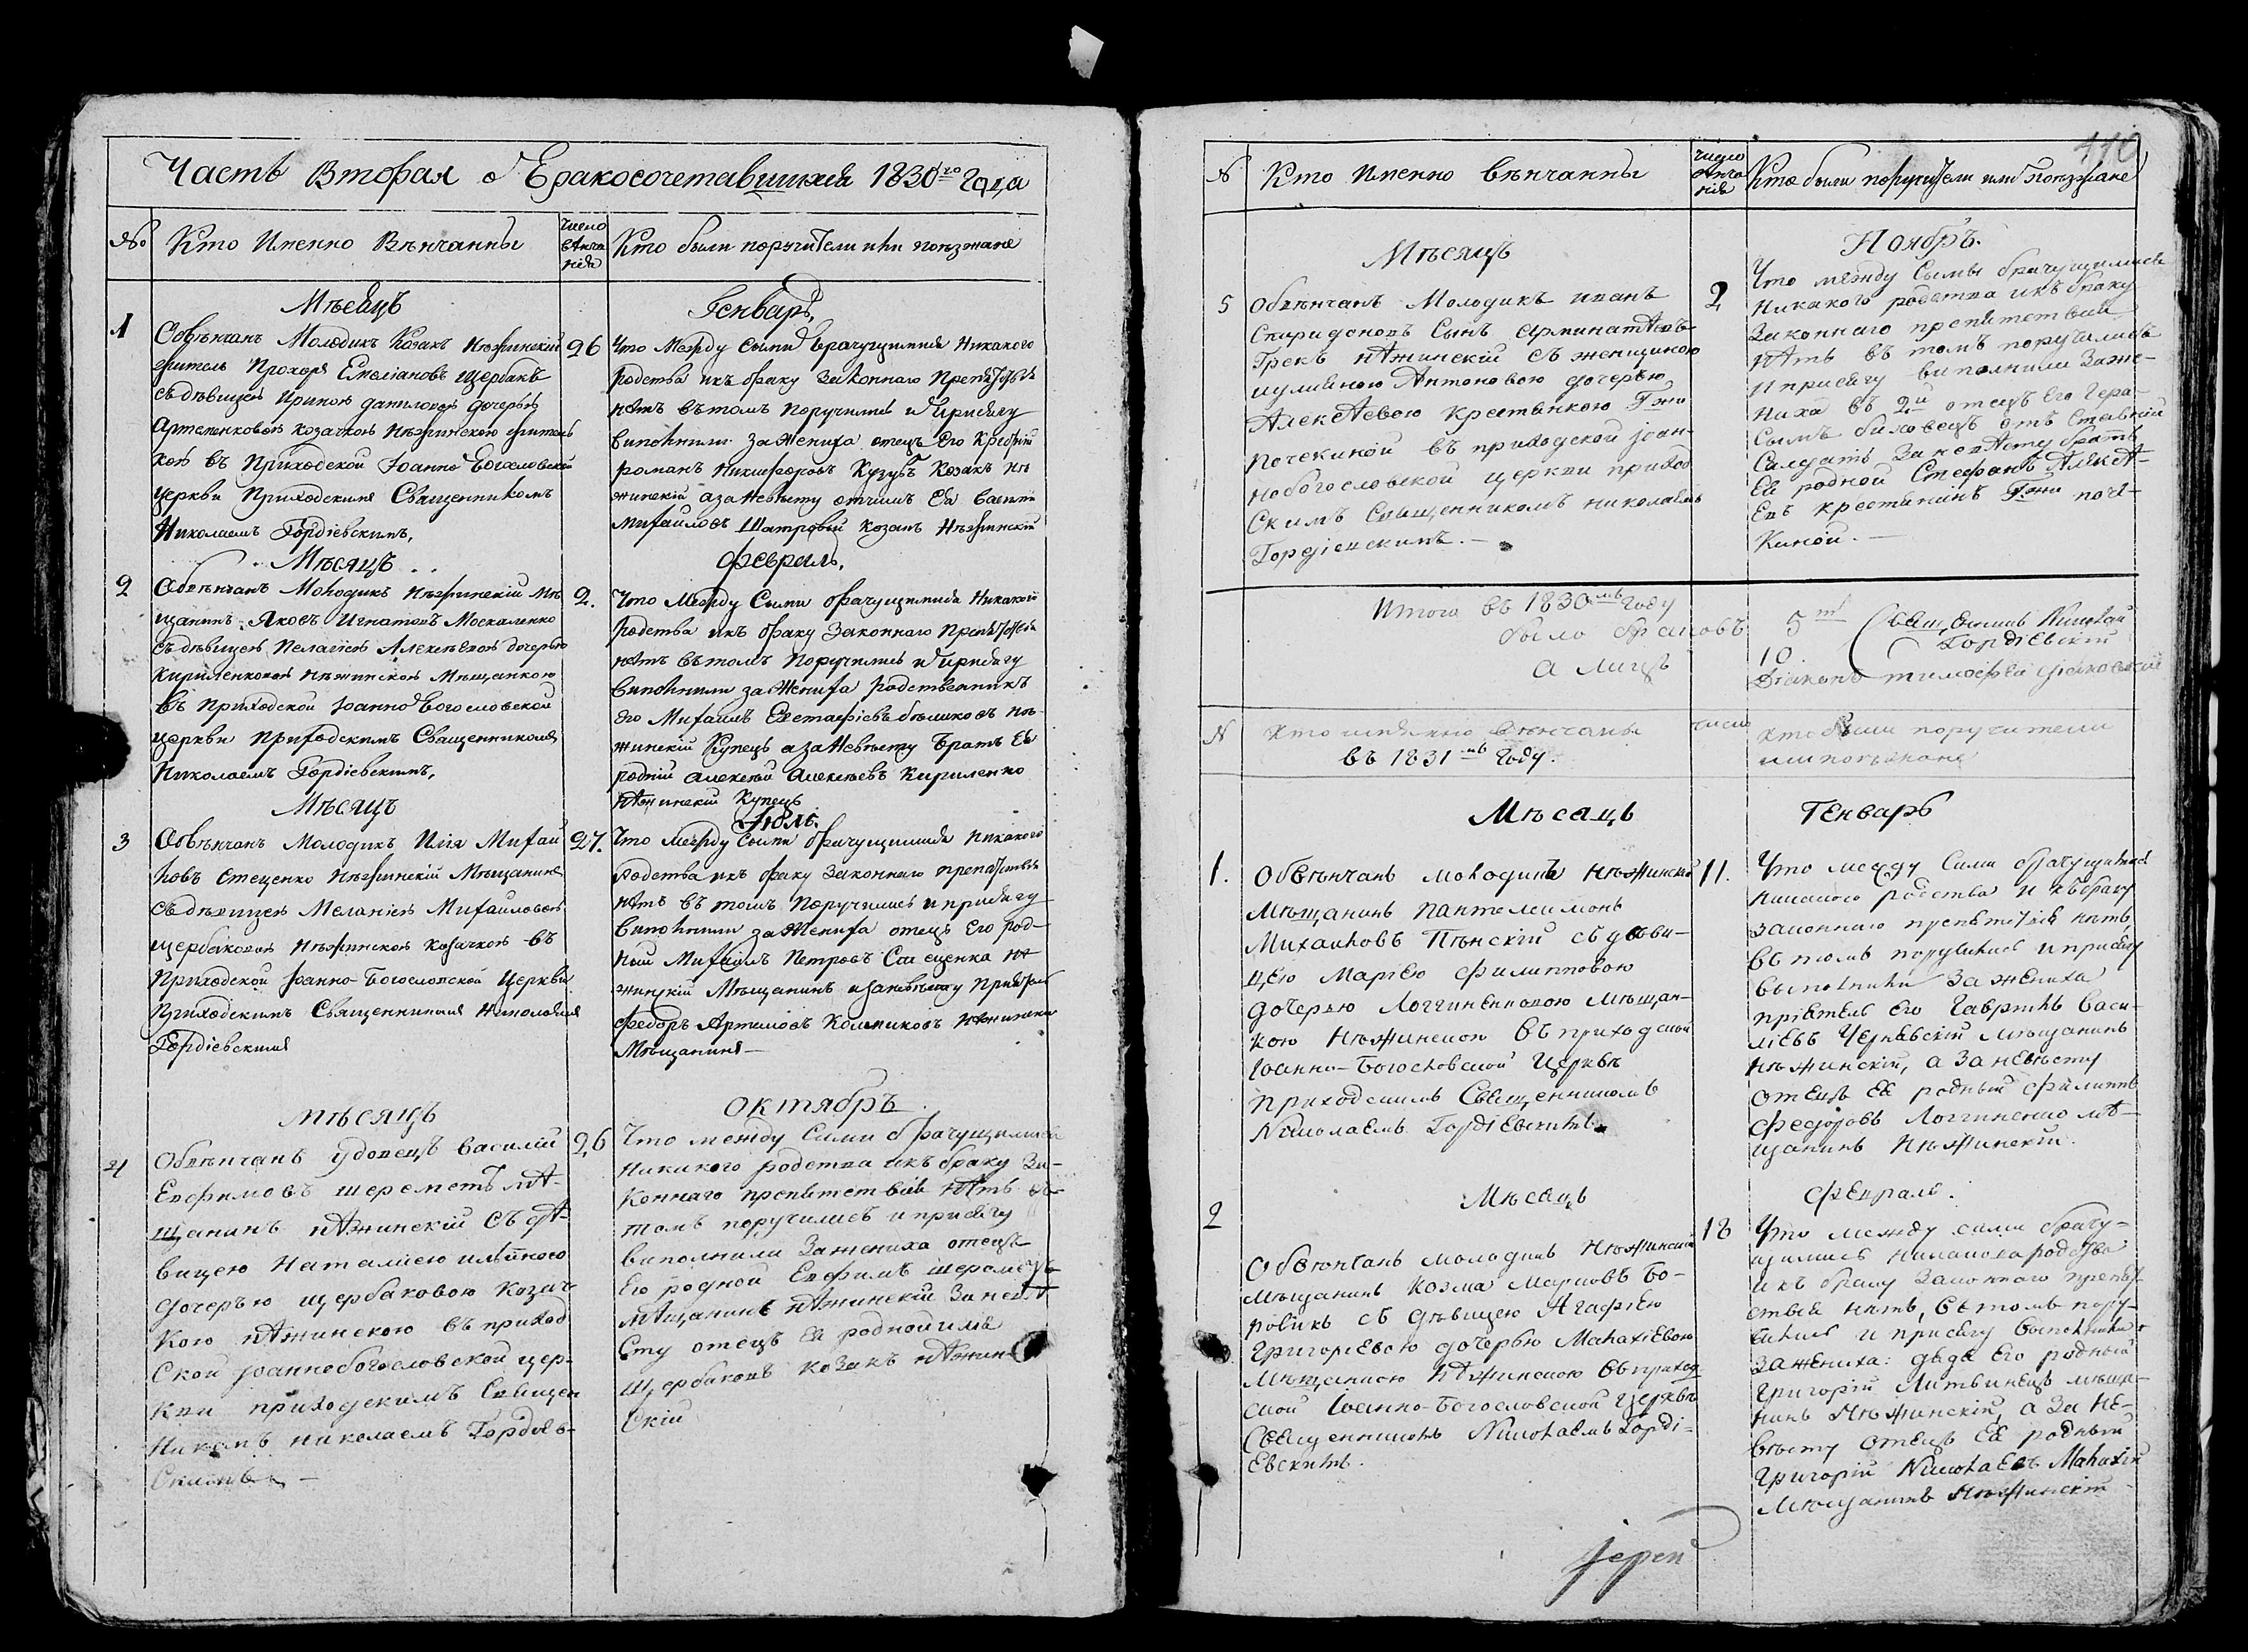 Часть Вторая о Бракосочетавшихся 1830го Года
№ Кто Именно Венчанны
число венча нія
Кто были поручители или поезжане
Мѣсяцъ
Генварь,
1
Обвѣнчанъ Молодикъ Козакъ Нѣжинскій
житель Прохоръ Емеліановъ Щербакъ
съ дѣвицею Ириною Даниловою дочерью
Артеменковою козачкою Нѣжинскою житель
кою въ Приходской Іоанно Богословской
церкви Приходскимъ Священникомъ
Николаемъ Гордіевскимъ,
26
Что Между Сыми брачущимися Никакого
родства икъ браку Законнаго Препятствія
нѣтъ вътомъ Поручились и Присягу
выполнили за Жениха отецъ Его
романъ Никифоровъ Козакъ Нѣ
жинскій а за Невѣсту отчимъ Ея
Михайловъ Шатровый козакъ Нѣжинскій
Мѣсяцъ
Февраль,
2
Обвѣнчанъ Молодикъ Нѣжинскій Мѣ
щанинъ Яковъ Игнатовъ Москаленко
съ дѣвицею Пелагіею Алексѣевою дочерью
Кириленковою Нѣжинскою Мѣщанкою
въ Приходской Іоанно Богословской
церкви Приходскимъ Священникомъ
Николаемъ Гордіевскимъ,
2.
Что Между Сыми брачущимися Никакого
родства икъ браку Законнаго Препятствія
нѣтъ вътомъ Поручились и Присягу
выполнили за Жениха родственникъ
Его Михаилъ Евстафіевъ нѣ
жинскій Купецъ а за Невѣсту братъ Ея
родній Алексѣй Алексѣевъ Кириленко
нѣжинскій Купецъ
Мѣсяцъ
Іюль.
3
Обвѣнчанъ Молодикъ Илія Михай
ловъ Стеценко Нѣжинскій Мѣщанинъ
съ дѣвицею Меланіею Михайловою
щербаковою Нѣжинскою козачкою въ
Приходской Іоанно-Богословской Церкви
Приходскимъ Священникомъ Николаемъ
Гордіевскимъ
27.
Что Между Сыми брачущимися Никакого
родства икъ браку Законнаго препятствія
нѣтъ вътомъ Поручились и присягу
выполнили за Жениха отецъ Его род-
ный Михаилъ Петровъ нѣ
жинскій Мѣщанинъ а за невѣсту
Федоръ Артемовъ Нѣжинскій
Мѣщанинъ
мѣсяцъ
октябръ.
4
Обвѣнчанъ удовецъ василій
Евфимовъ шереметъ мѣ-
щанинъ нѣжинскій съ дѣ-
вицею Наталіею
дочерью щербаковою Козач
кою нѣжинскою въ приход
Ской Іоаннобогословской цер-
кви приходскимъ Священ
никомъ николаемъ Гордіев-
Скимъ
26
Что между Сими брачущимися
никакого родства икъ браку За-
коннаго препятствія нѣтъ въ
томъ поручились и присягу
виполнили За жениха отецъ
Его родной Евфимъ шереметъ
мѣщанинъ нѣжинскій За невѣ-
сту отецъ Ея родной илія
Щербаковъ козакъ нѣжин-
Скій
№ Кто именно вѣнчанны
число вѣнча нія
Кто были поручители или поѣзжане
Мѣсяцъ
Ноябръ.
5
Обвѣнчанъ Молодикъ иванъ
Спиридоновъ Сынъ
Грекъ нѣжинскій съ женщиною
иулианою Антоновою дочерью
Алексѣевою крестянкою Гжи
Почекиной въ приходской іоан-
нобогословской церкви приход
Скимъ Священникомъ николаемъ
Гордіевскимъ.
2
Что между Сыми брачущимися
никакого родства икъ браку
Законнаго препятствія
нѣтъ въ томъ поручились
и присягу виполнили За же-
ниха въ 2й отецъ Его Гера-
Салдатъ За невѣсту братъ
Ея родной Стефанъ Алексѣ-
евъ крестянинъ Гжи поче-
киной.
Итого въ 1830мъ Году
было браковъ 5тъ
а лицъ 10
Священникъ Николай
Гордіевскій
Діаконъ тимофей
№ кто именно вѣнчаны
въ 1831мъ Году.
число
кто были поручители
или поезжане
Мѣсацъ
Генварь
1.
Обвѣнчанъ молодикъ Нѣжинскій
Мѣщанинъ Пантелеимонъ
Михаиловъ Пѣнскій съ дѣви-
цею Маріею Филипповою
дочерью Логгиненковою мѣщан-
кою Нѣжинскою въ приходской
Іоанно-Богословской Церквѣ
Приходскимъ Священникомъ
Николаемъ Гордіевскимъ.
11.
Что между Сими брачущимися
никакого родства и къ браку
законнаго препятствія нѣтъ
въ томъ поручились и присягу
выполнили За жениха
пріятель его Гавріилъ Васи-
ліевъ Чернявскій мѣщанинъ
нѣжинскій, а За невѣсту
отецъ Ея родный Филиппъ
Федоровъ Логгиненко мѣ-
щанинъ Нѣжинскій.
Мѣсацъ
Февраль.
2
Обвѣнчанъ молодикъ Нѣжинскій
мѣщанинъ Козма Марковъ Бо-
ровикъ съ дѣвицею Агафіею
Григоріевою дочерью Малахіевою
мѣщанкою нѣжинскою въ приход
ской Іоанно-Богословской Церквѣ
Священникомъ Николаемъ Горді-
Евскимъ.
18
Что между сими брачу-
щимись никакова родства
икъ браку Законнаго препят-
ствія нѣтъ, вътомъ пору-
чились и присягу выполнили
За жениха: дядя Его родный
Григорій Литвинецъ мѣща-
нинъ Нѣжинскій, а За не-
вѣсту отецъ Ея родный
Григорій Николаевъ Малахій
Мѣщанинъ Нѣжинскій
Іерей